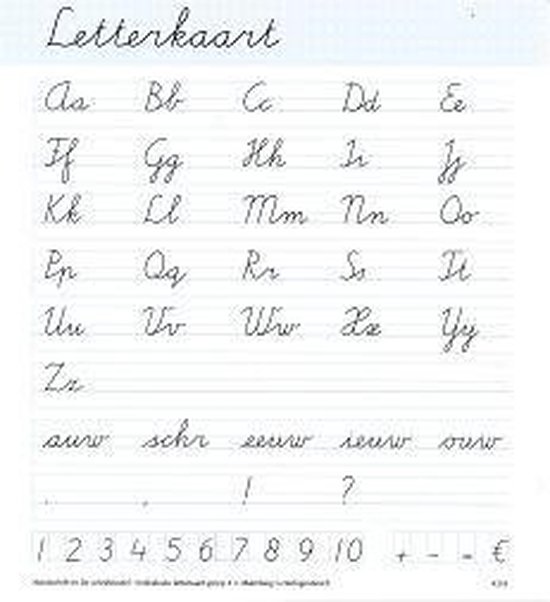 Letterkaart
Aa Bb Cc Dd Ee
Ff Gg Hh Ii Jj
Kk Ll Mm Nn Oo
Pp Qq Rr Ss Tt
Uu Vv Ww Xx Yy
Zz
auw schr eeuw ieuw ouw
. , ! ?
1 2 3 4 5 6 7 8 9 10 + - = €